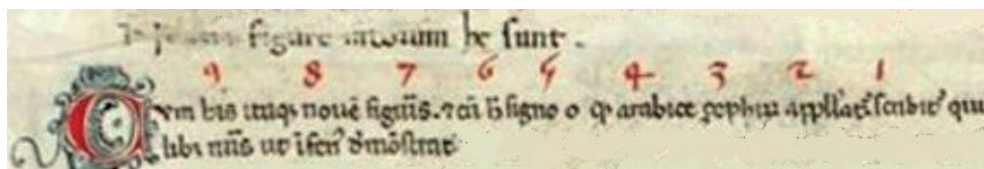 figure indorum he sunt.
9 8 7 6 5 4 3 2 1
Cum his itaqꝫ novē figuris. ⁊ cū h̄ signo o qͥ arabice ҫephiru appllat͛ scribit͛ qui
libꝫ nūs ut īferi͛ dꝰmōstrat͛